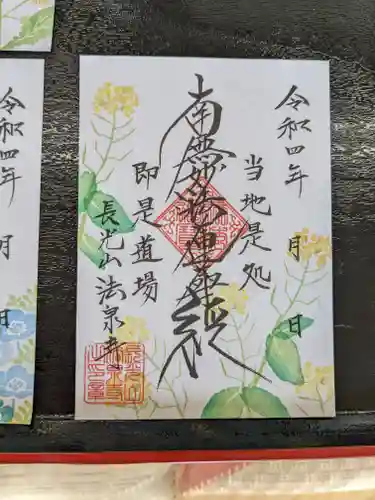 令和四年 月 日
当地是処
南無妙法蓮華経
即是道場
長光山法泉寺
令和四年 月 日